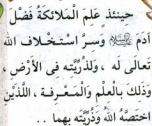 حينئذ عَلِمَ الْمَلَائِكَةُ فَضْلَ
آدَمَ ﷺ وَسِر اسْتِخْلاف الله
تَعالَى لَه ، وَلذُرِّيَّتِه فِى الأَرْضِ ،
وَذَلكَ بِالْعِلْمِ وَالْمَعْرِفَة ، اللَّذَيْنِ
اخْتَصَّهُ اللهُ وَذُرِّيَّتَه بِهِمَا ..